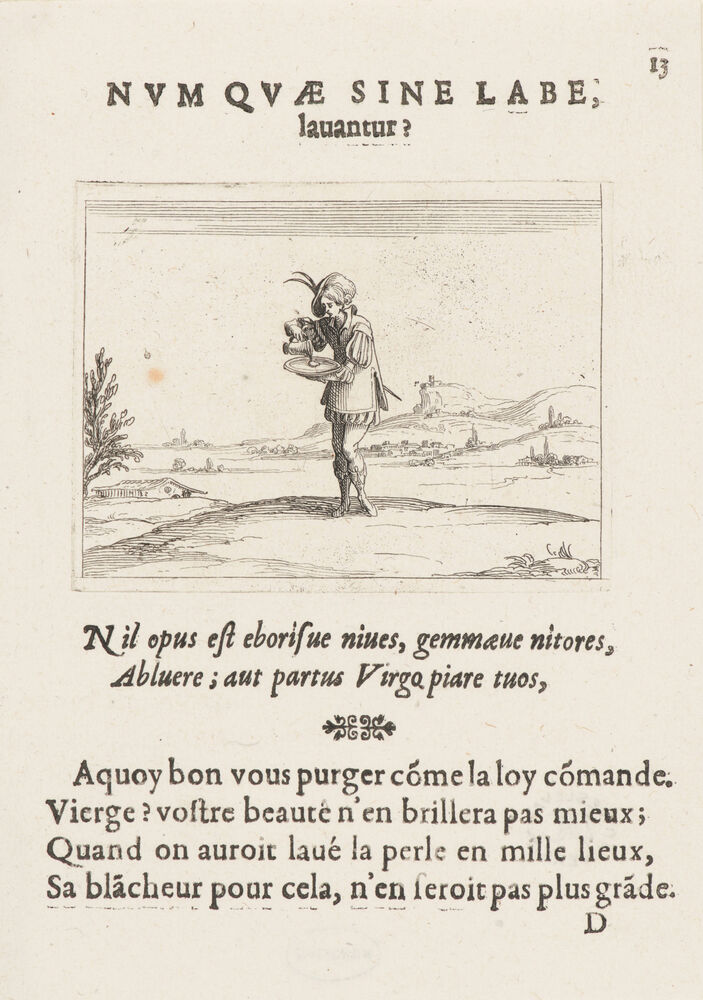 13
NVM QVÆ SINE LABE,
lauantur?
Nil opus est eborisue niues, gemmæue nitores,
Abluere; aut partus Virgo piare tuos,
Aquoy bon vous purger cõme la loy cõmande.
Vierge? voſtre beauté n'en brillera pas mieux;
Quand on auroit laué la perle en mille lieux,
Sa blãcheur pour cela, n'en ſeroit pas plus grãde.
D